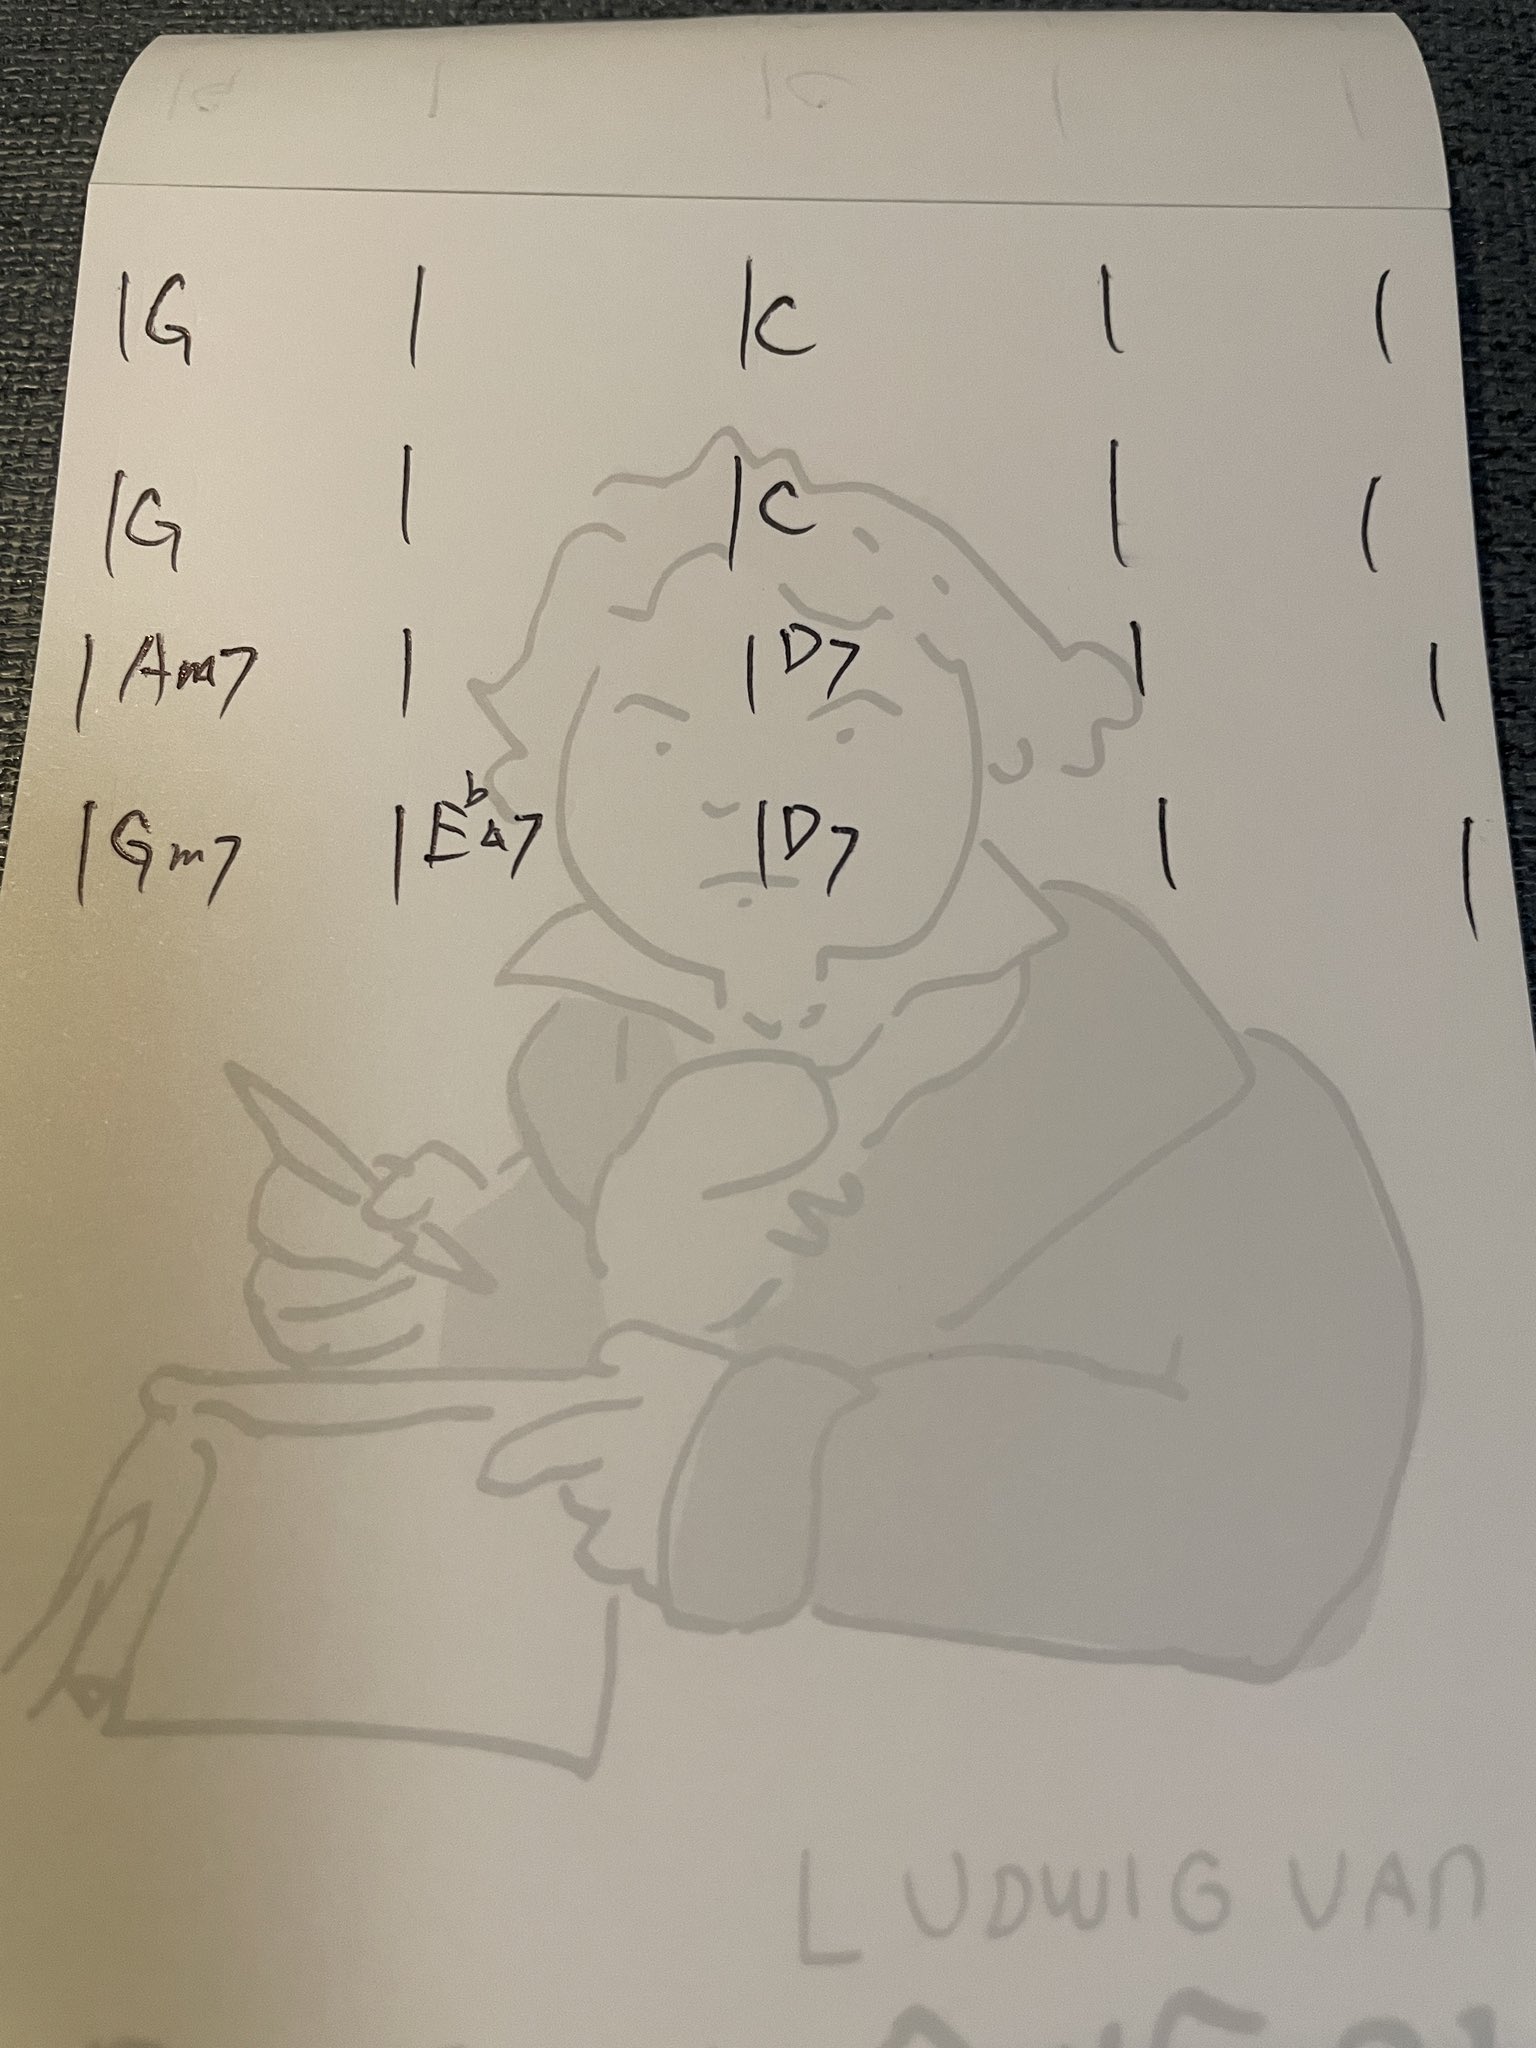 |G | |C | |
|G | |C | |
|Am7 | |D7 | |
|Gm7 |E♭△7 |D7 | |
LUDWIG VAN